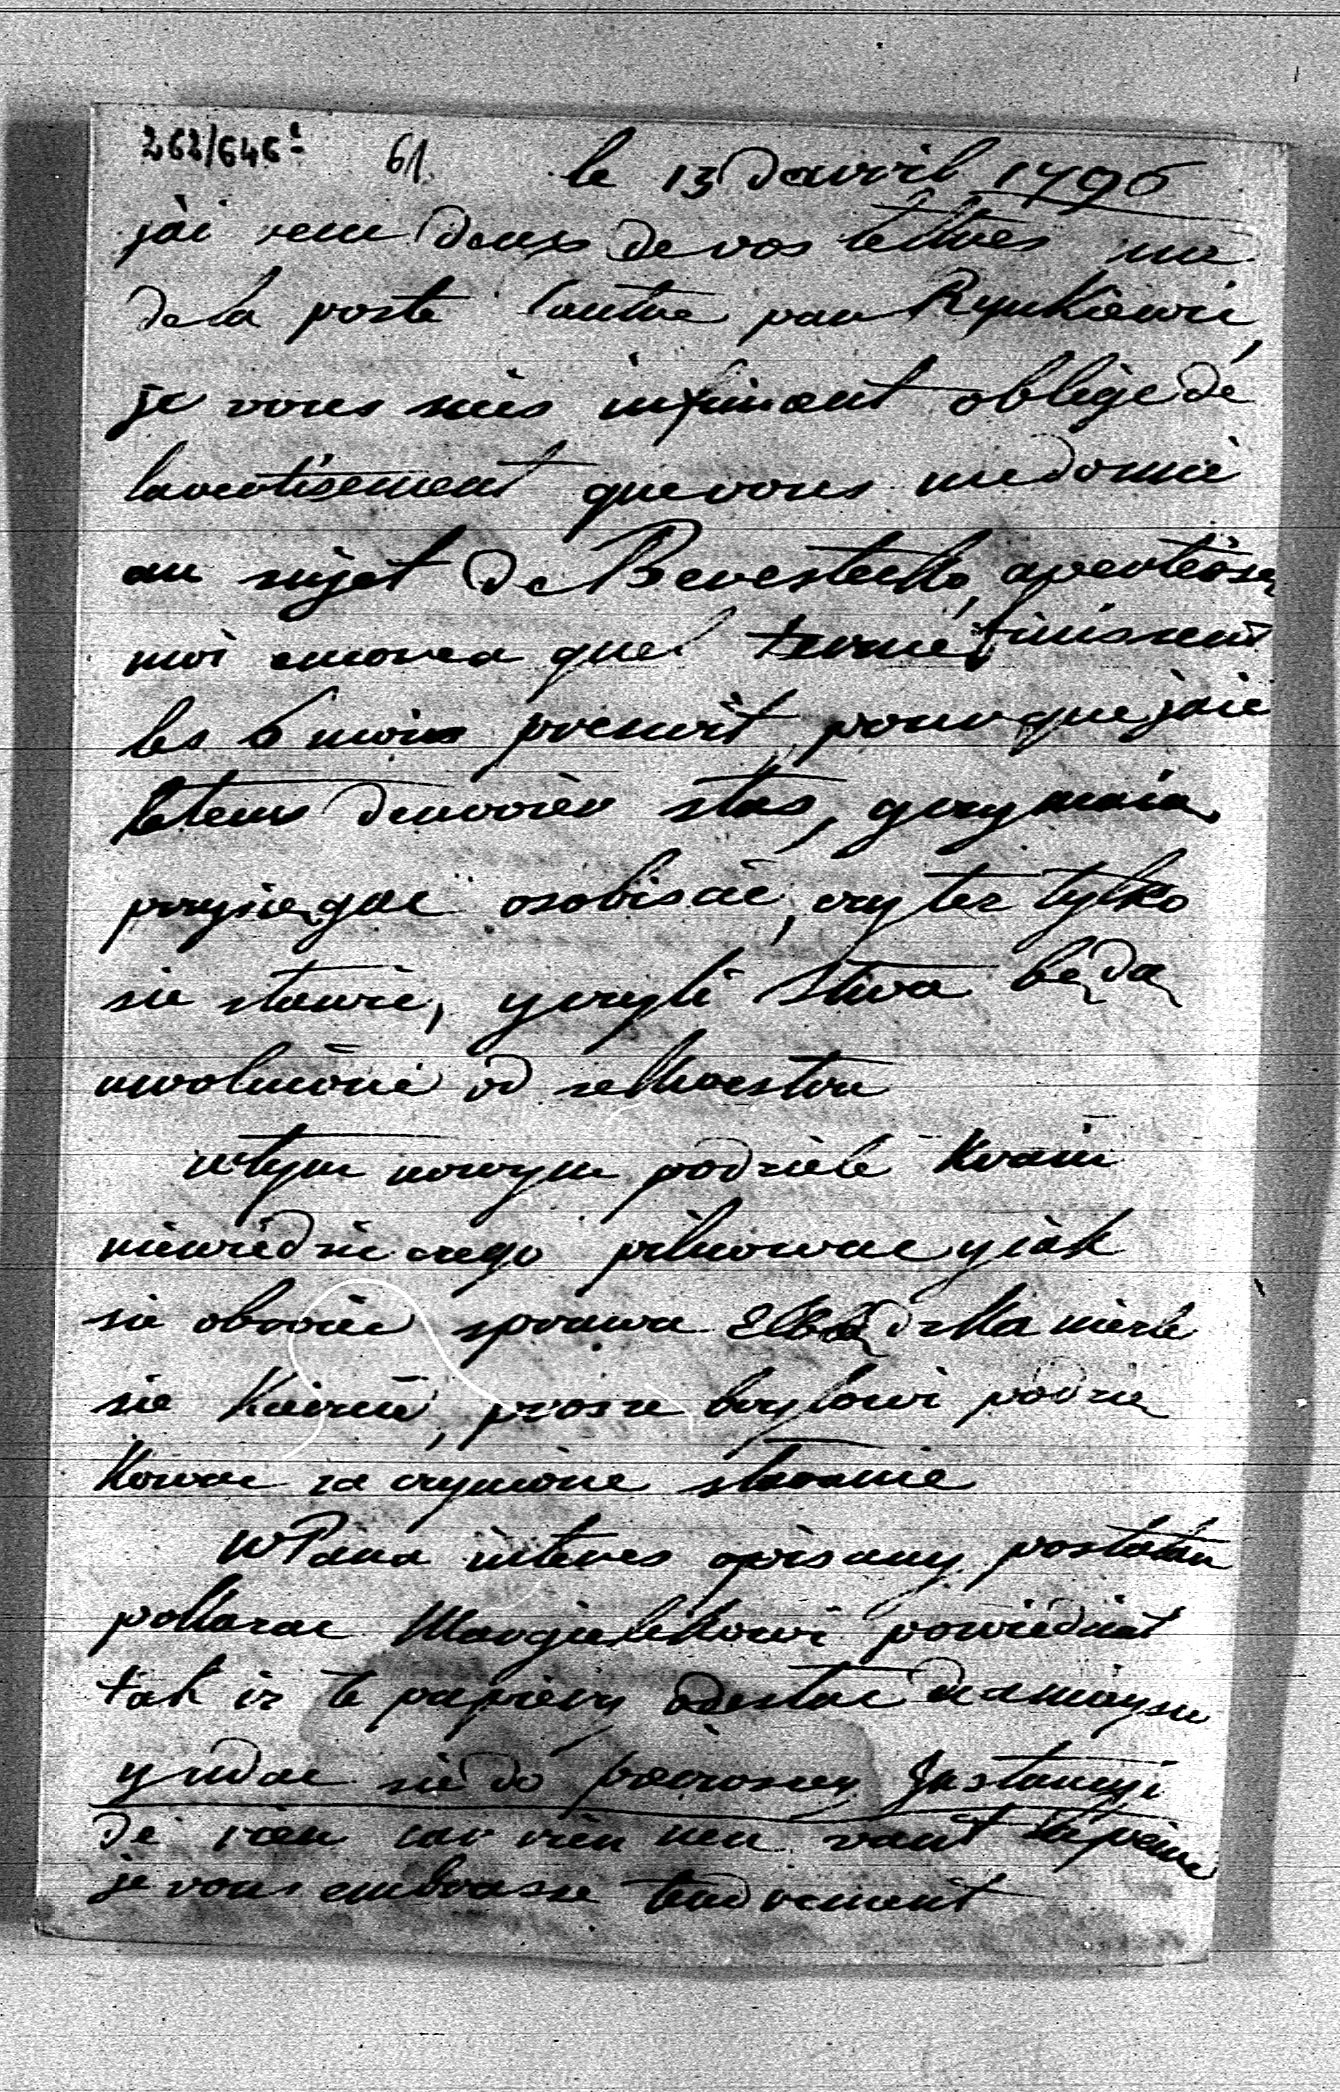 262/646
61.
le 13 davril 1796
jài reeu deux de vos lettres une
de la poste lautre par Rynkiewi
je vous suis infiniment obligé de
lavertisement que vous me donné
au sujet de Berestecko, avertisse
moi encorea quel terme finissent
les 6 mois prescrit, pour que jaie
letems denvoier stas, y czy maia
przysiegac osobiscie, czy tez tylko
sie stawic, y czyli Stwa będą
uwolnione od sekwestru
w tym nowym podziele kraiu
niewiedzic czego pilnowac y iak
sie obroci sprawa
sie koiencu, prosze bryłowi podzie
kowac za czynione staranie
w Pana interes opisany
pokazac powiedział
tak iz te papiery odestac
y udac sie do pierwszey Jnstancyi
de rien car rien nen vaut la peine
je vous embrasse tendrement